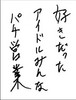 好きだった
アイドルみんな
パチ営業